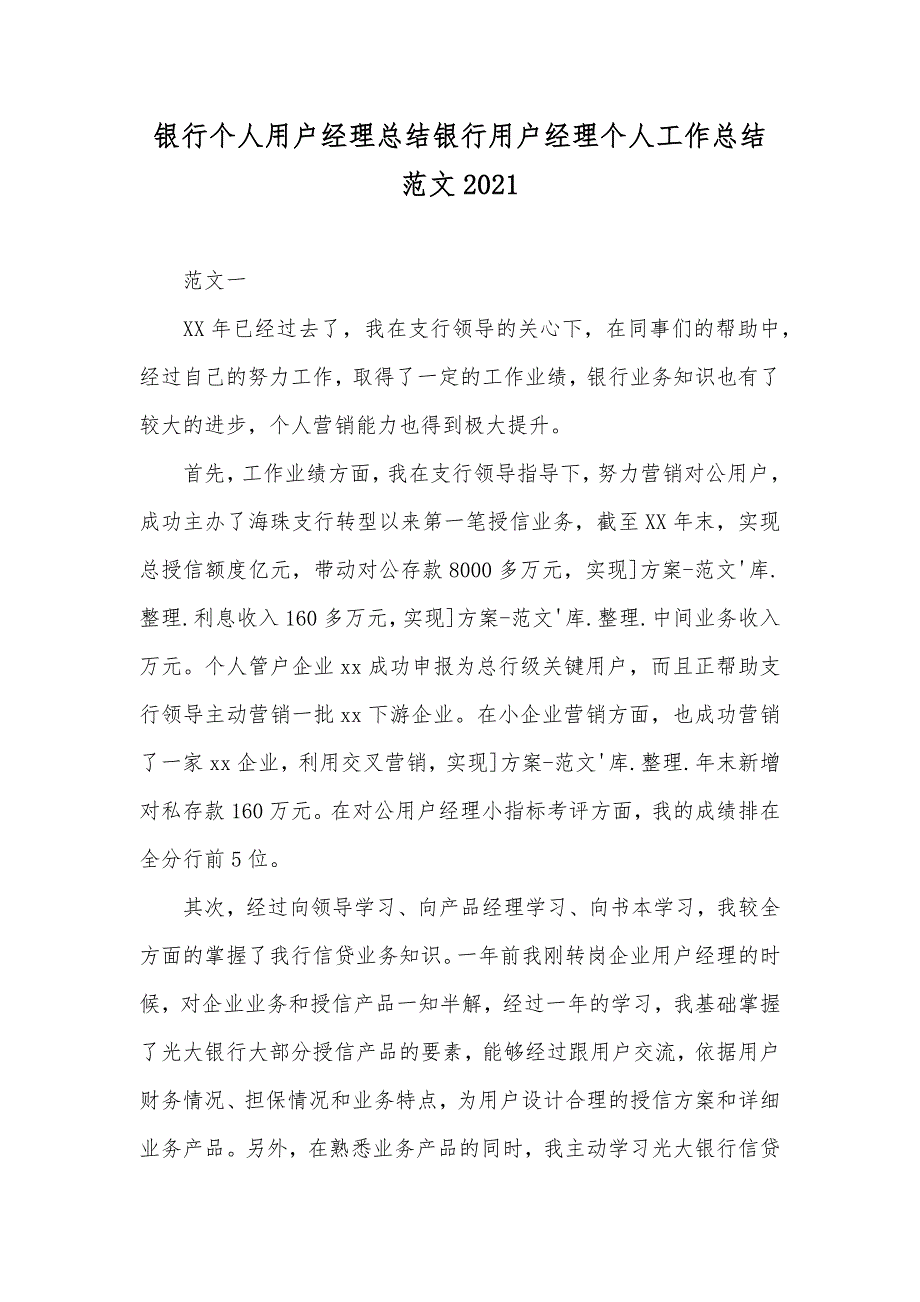 银行个人用户经理总结银行用户经理个人工作总结
范文2021
范文一
XX年已经过去了，我在支行领导的关心下，在同事们的帮助中，
经过自己的努力工作，取得了一定的工作业绩，银行业务知识也有了
较大的进步，个人营销能力也得到极大提升。
首先，工作业绩方面，我在支行领导指导下，努力营销对公用户，
成功主办了海珠支行转型以来第一笔授信业务，截至XX年末，实现
总授信额度亿元，带动对公存款8000多万元，实现]方案-范文'库.
整理.利息收入160多万元，实现]方案-范文'库.整理.中间业务收入
万元。个人管户企业xx成功申报为总行级关键用户，而且正帮助支
行领导主动营销一批xx下游企业。在小企业营销方面，也成功营销
了一家xx企业，利用交叉营销，实现]方案-范文'库.整理.年末新增
对私存款160万元。在对公用户经理小指标考评方面，我的成绩排在
全分行前5位。
其次，经过向领导学习、向产品经理学习、向书本学习，我较全
方面的掌握了我行信贷业务知识。一年前我刚转岗企业用户经理的时
候，对企业业务和授信产品一知半解，经过一年的学习，我基础掌握
了光大银行大部分授信产品的要素，能够经过跟用户交流，依据用户
财务情况、担保情况和业务特点，为用户设计合理的授信方案和详细
业务产品。另外，在熟悉业务产品的同时，我主动学习光大银行信贷